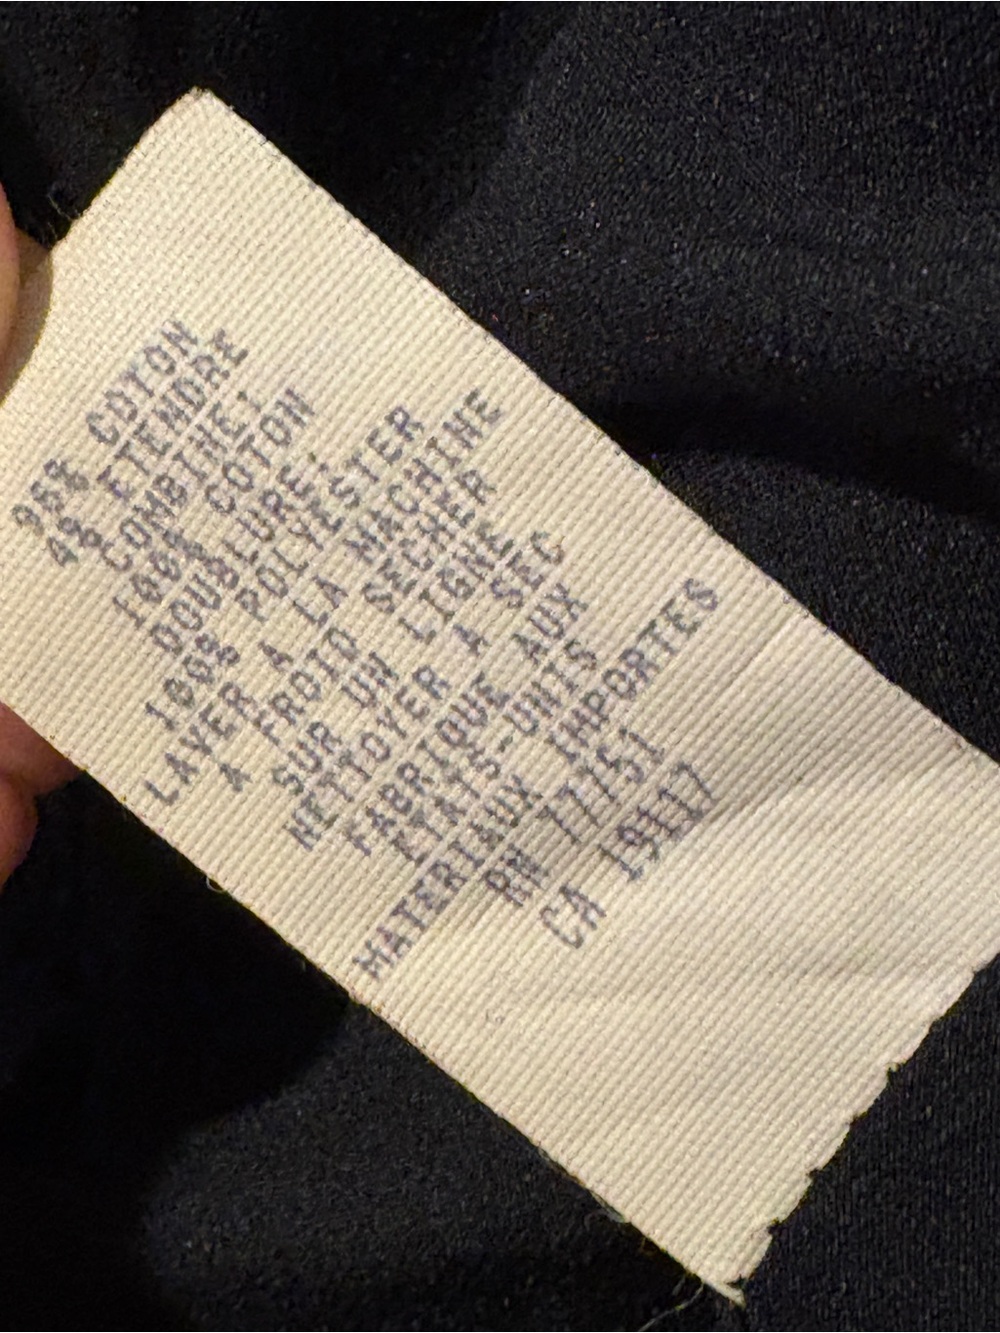 96% COTON
4% ETENDRE
COMBINE:
100% COTON
DOUBLURE:
100% POLYESTER
LAVER A LA MACHINE
A FROID SECHER
SUR UN LIGNE
NETTOYER A SEC
FABRIQUE AUX
ETATS-UNIS
MATERIAUX IMPORTES
RN 77751
CA 19117